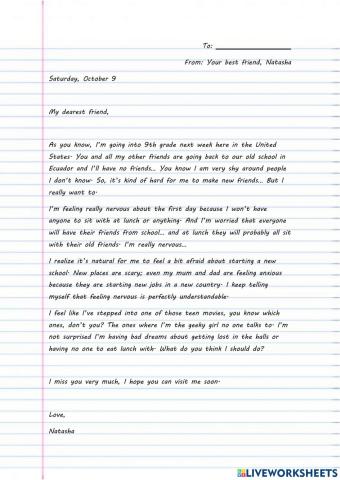 To: ____________________
From: Your best friend, Natasha
Saturday, October 9
My dearest friend,
As you know, I'm going into 9th grade next week here in the United
States. You and all my other friends are going back to our old school in
Ecuador and I'll have no friends... You know I am very shy around people
I don't know. So, it's kind of hard for me to make new friends... But I
really want to.
I'm feeling really nervous about the first day because I won't have
anyone to sit with at lunch or anything. And I'm worried that everyone
will have their friends from school... and at lunch they will probably all sit
with their old friends. I'm really nervous...
I realize it's natural for me to feel a bit afraid about starting a new
school. New places are scary; even my mum and dad are feeling anxious
because they are starting new jobs in a new country. I keep telling
myself that feeling nervous is perfectly understandable.
I feel like I've stepped into one of those teen movies, you know which
ones, don't you? The ones where I'm the geeky girl no one talks to. I'm
not surprised I'm having bad dreams about getting lost in the halls or
having no one to eat lunch with. What do you think I should do?
I miss you very much, I hope you can visit me soon.
Love,
Natasha
LIVEWORKSHEETS